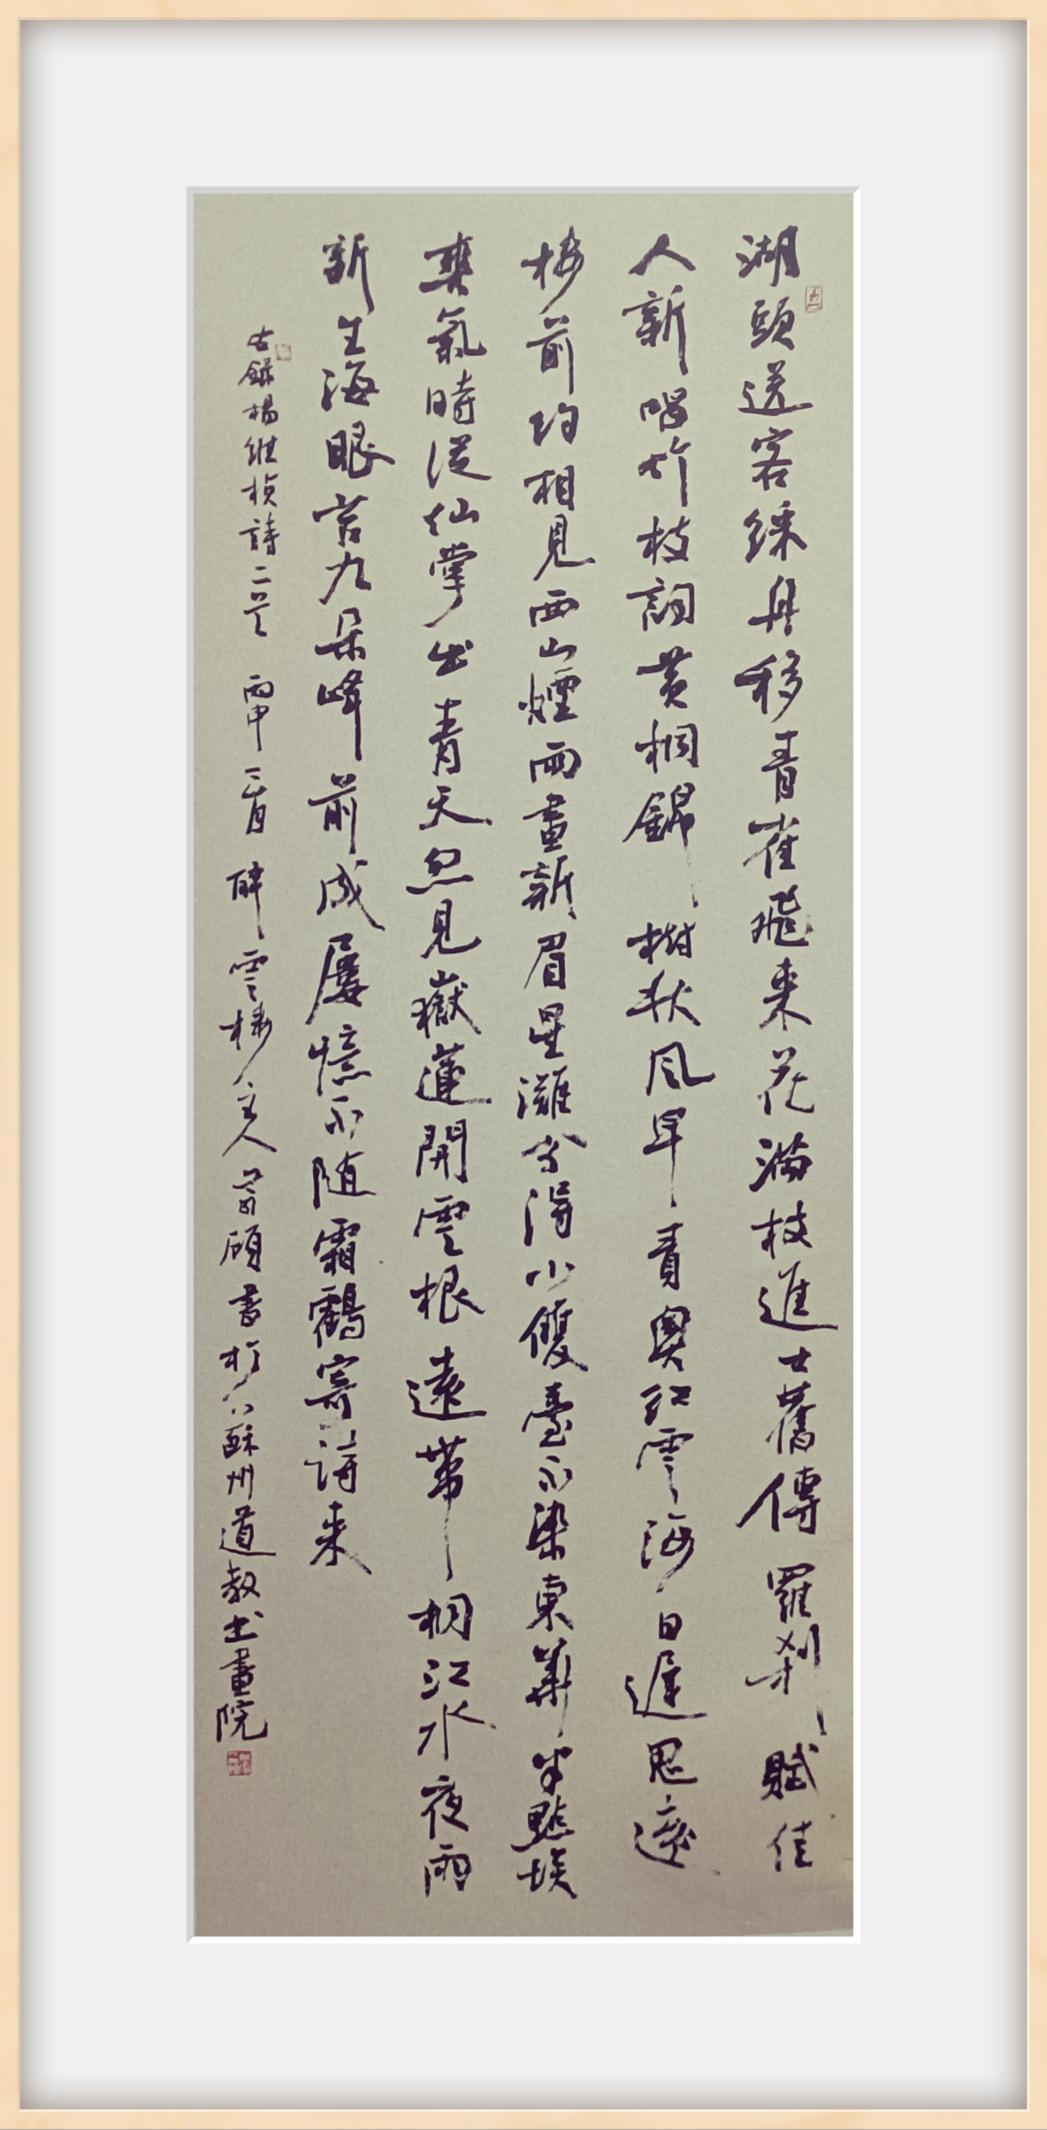 湖頭送客綵舟移青雀飛來花滿枝進士舊傳羅刹賦佳
人新唱竹枝詞黃柑錦樹秋風早青奧紅雲海日遲思遠
樓前約相見西山煙雨畫新眉星灘分得小雙臺不染東華半點埃
爽氣時從仙掌出青天忽見嶽蓮開雲根遠帶桐江水夜雨
新生海眼苔九朵峰前成屢憶不隨霜鶴寄詩來
右錄楊維楨詩二首 丙申二月 醉雲樓主人 書於蘇州道教書畫院